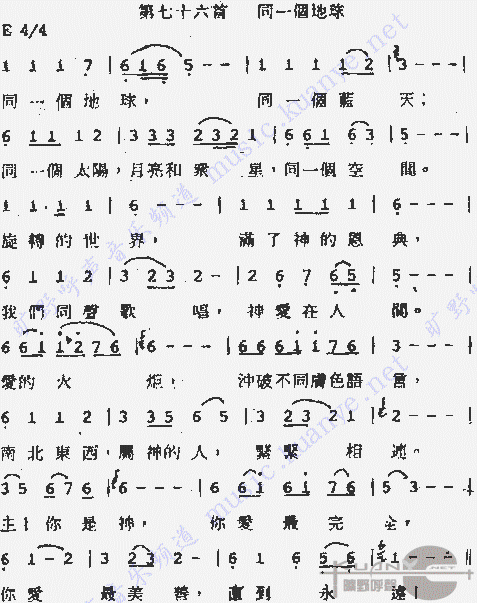 第七十六首 同一個地球
E 4/4
1 1 1 7 | 6 1 6 5 - - | 1 1 1 1 2 | 3 - - - |
同一個地球， 同一個藍天；
6 1 1 1 2 | 3 3 3 2 3 2 1 | 6 1 1 6 3 | 5 - - - |
同一個太陽，月亮和衆星，同一個空間。
1 1 1 1 1 | 6 - - - | 1 1 1 1 1 1 | 6 - - - |
旋轉的世界， 滿了神的恩典，
6 1 1 2 | 3 2 3 2 - | 2 6 7 6 5 | 5 - - - |
我們同聲歌唱，神愛在人間。
6 6 1 1 2 7 6 | 6 - - - | 6 6 6 6 1 1 7 6 | 3 - - - |
愛的火炬， 沖破不同膚色語言，
6 1 1 2 | 3 3 5 6 5 | 3 2 3 2 1 | 2 - - - |
南北東西，屬神的人，緊緊相連。
3 5 6 7 6 | 6 - - - | 6 6 1 6 1 7 6 | 3 - - - |
主！你是神， 你愛最完全，
6 1 - 2 | 3 2 3 2 - | 6 1 6 5 6 | 1 - - - |
你愛最美善，直到永遠！
旷野呼声音乐频道 music.kuanye.net
KUANYE
曠野呼聲